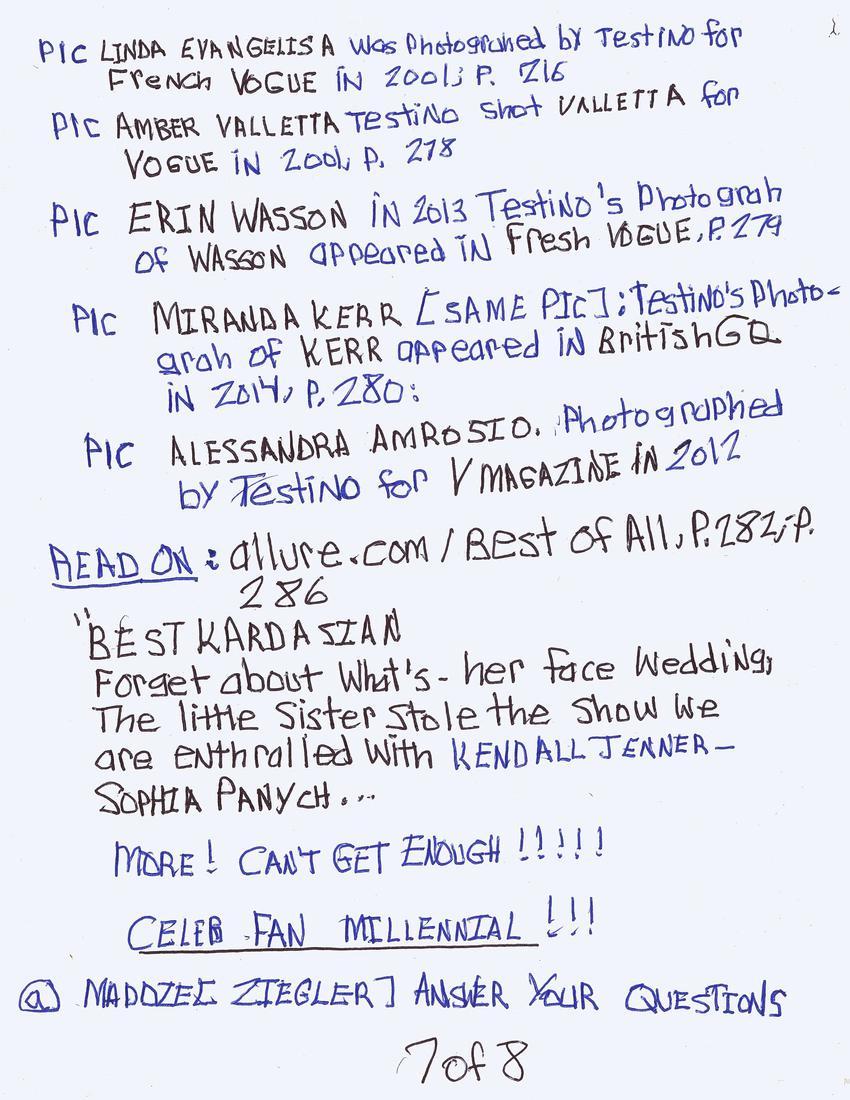 PIC LINDA EVANGELISA was Photograhed by Testino for
French VOGUE IN 2001; P. 216
PIC AMBER VALLETTA Testino shot VALLETTA for
VOGUE IN 2001, P. 278
PIC ERIN WASSON IN 2013 Testino's Photograh
of WASSON appeared IN Fresh VOGUE, P. 279
PIC MIRANDA KERR [SAME PIC]; Testino's Photo-
grah of KERR appeared IN British GQ
in 2014, P. 280:
PIC ALESSANDRA AMROSIO. Photographed
by Testino for V MAGAZINE IN 2012
READ ON: allure.com/Best of All, P. 282; P.
286
"BEST KARDASIAN
Forget about What's-her face Wedding,
The little Sister Stole the Show We
are enthralled With KENDALL JENNER-
SOPHIA PANYCH...
MORE! CAN'T GET ENOUGH !!!!!
CELEB FAN MILLENNIAL !!!
@ MADDZE[ ZIEGLER] ANSWER YOUR QUESTIONS
7 of 8